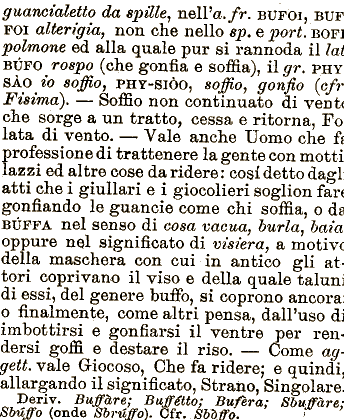 guancialetto da spille, nell'a. fr. BUFOI, BUF
FOI alterigia, non che nello sp. e port. BOFE
polmone ed alla quale pur si rannoda il lat
BÚFO rospo (che gonfia e soffia), il gr. PHY
SÀO io soffio, PHY-SIÒO, soffio, gonfio (cfr
Fisima). — Soffio non continuato di vento
che sorge a un tratto, cessa e ritorna, Fo
lata di vento. — Vale anche Uomo che fa
professione di trattenere la gente con motti
lazzi ed altre cose da ridere: cosí detto dagl
atti che i giullari e i giocolieri soglion fare
gonfiando le guancie come chi soffia, o da
BÚFFA nel senso di cosa vacua, burla, baia
oppure nel significato di visiera, a motivo
della maschera con cui in antico gli at-
tori coprivano il viso e della quale taluni
di essi, del genere buffo, si coprono ancora:
o finalmente, come altri pensa, dall'uso di
imbottirsi e gonfiarsi il ventre per ren-
dersi goffi e destare il riso. — Come ag-
gett. vale Giocoso, Che fa ridere; e quindi,
allargando il significato, Strano, Singolare.
Deriv. Buffàre; Buffétto; Bufèra; Sbuffàre;
Sbúffo (onde Sbrúffo). Cfr. Sbòffo.